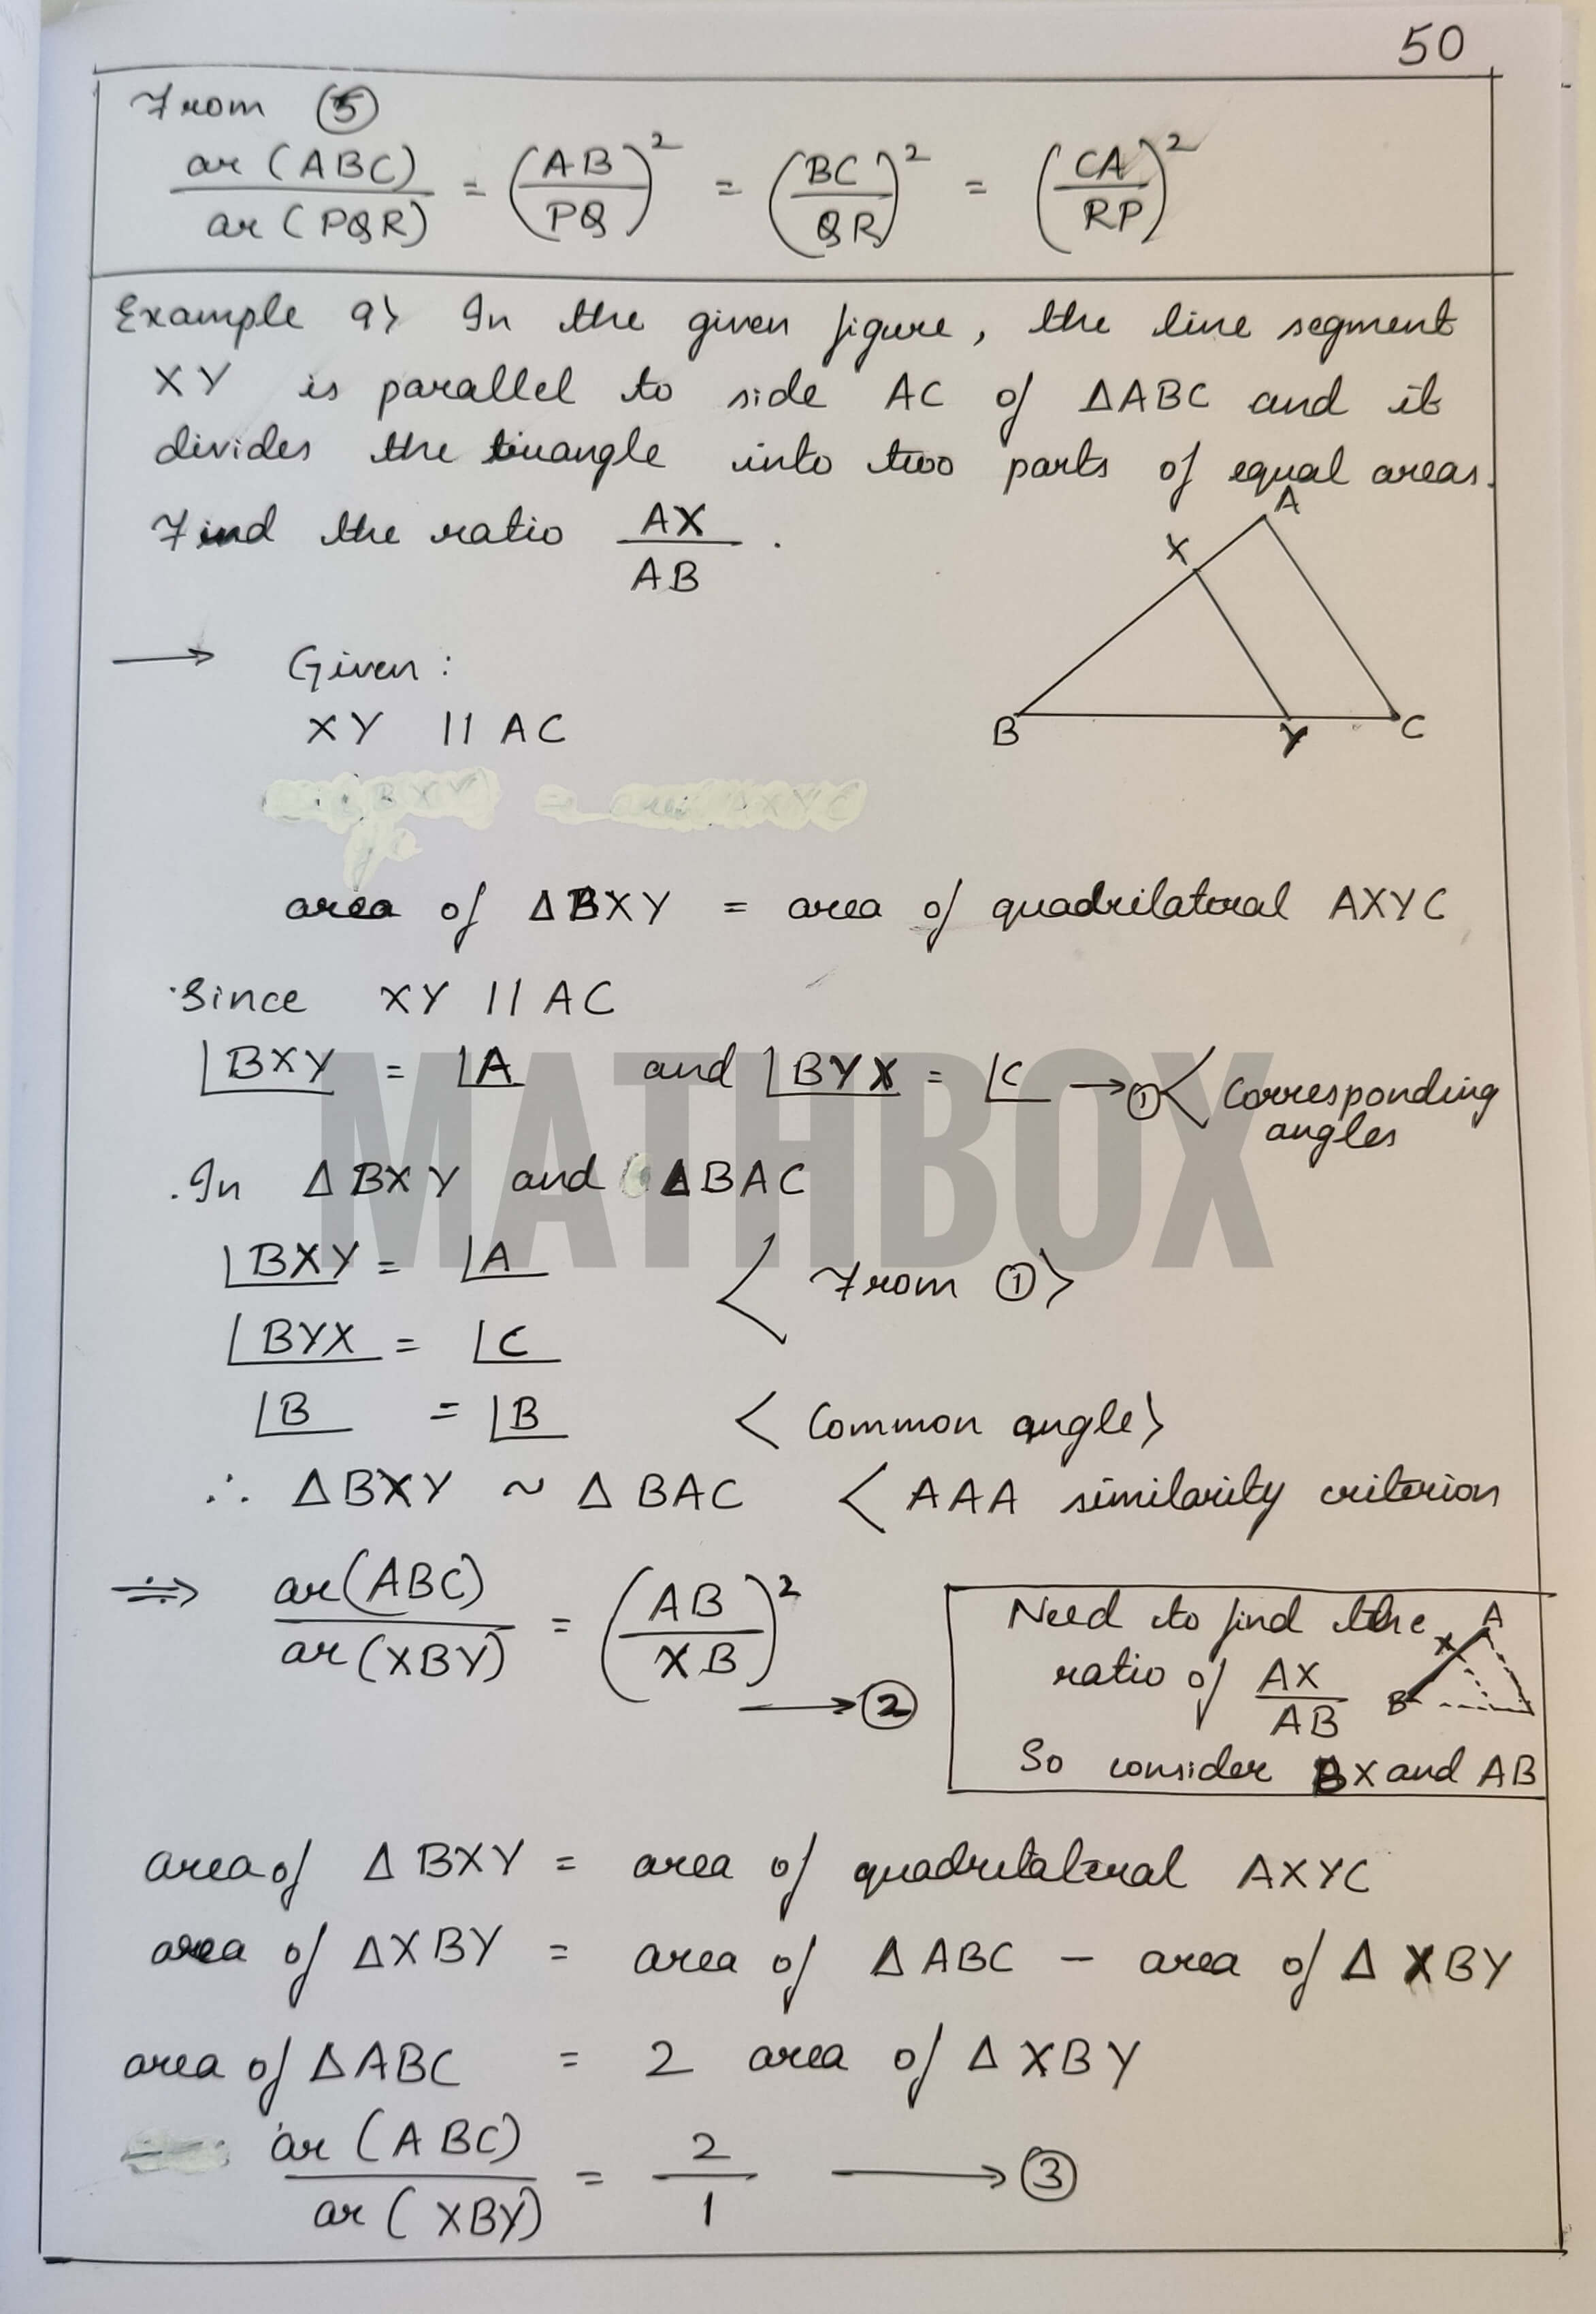 50
From ⑤
ar (ABC) / ar (PQR) = (AB / PQ)² = (BC / QR)² = (CA / RP)²
Example 9> In the given figure, the line segment
XY is parallel to side AC of ΔABC and it
divides the triangle into two parts of equal areas.
Find the ratio AX / AB .
A
X
B
Y
C
→ Given :
XY || AC
area of ΔBXY = area of quadrilateral AXYC
Since XY || AC
∠BXY = ∠A and ∠BYX = ∠C → ① < Corresponding
angles
In ΔBXY and ΔBAC
∠BXY = ∠A < From ① >
∠BYX = ∠C
∠B = ∠B < Common angle>
∴ ΔBXY ~ ΔBAC < AAA similarity criterion
⇒ ar(ABC) / ar(XBY) = (AB / XB)² → ②
Need to find the
ratio of AX / AB
So consider BX and AB
A
X
B
area of ΔBXY = area of quadrilateral AXYC
area of ΔXBY = area of ΔABC – area of ΔXBY
area of ΔABC = 2 area of ΔXBY
ar (ABC) / ar (XBY) = 2 / 1 → ③
MATHBOX